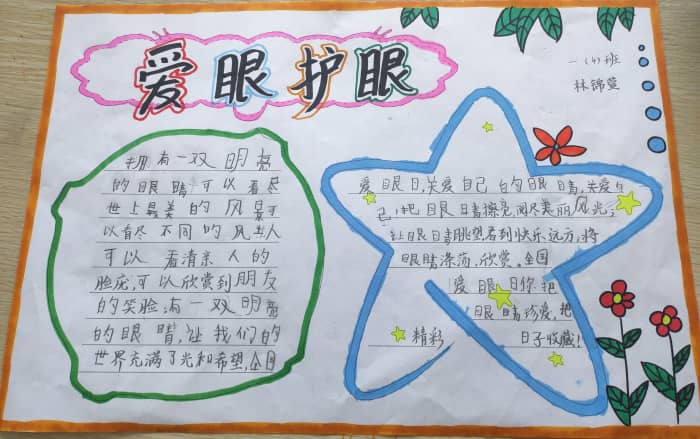 爱眼护眼
一(4)班
林锦萱
拥有一双明亮
的眼睛可以看尽
世上最美的风景可
以看尽不同的风土人
可以看清亲人的
脸庞,可以欣赏到朋友
的笑脸,有一双明亮
的眼睛,让我们的
世界充满了光和希望,全国
爱眼日,关爱自己的眼睛,关爱自
己,把眼睛擦亮,阅尽美丽风光;
让眼睛眺望看到快乐远方,将
眼睛涤荡,欣赏。全国
爱眼日你把
眼睛珍爱,把
精彩日子收藏!